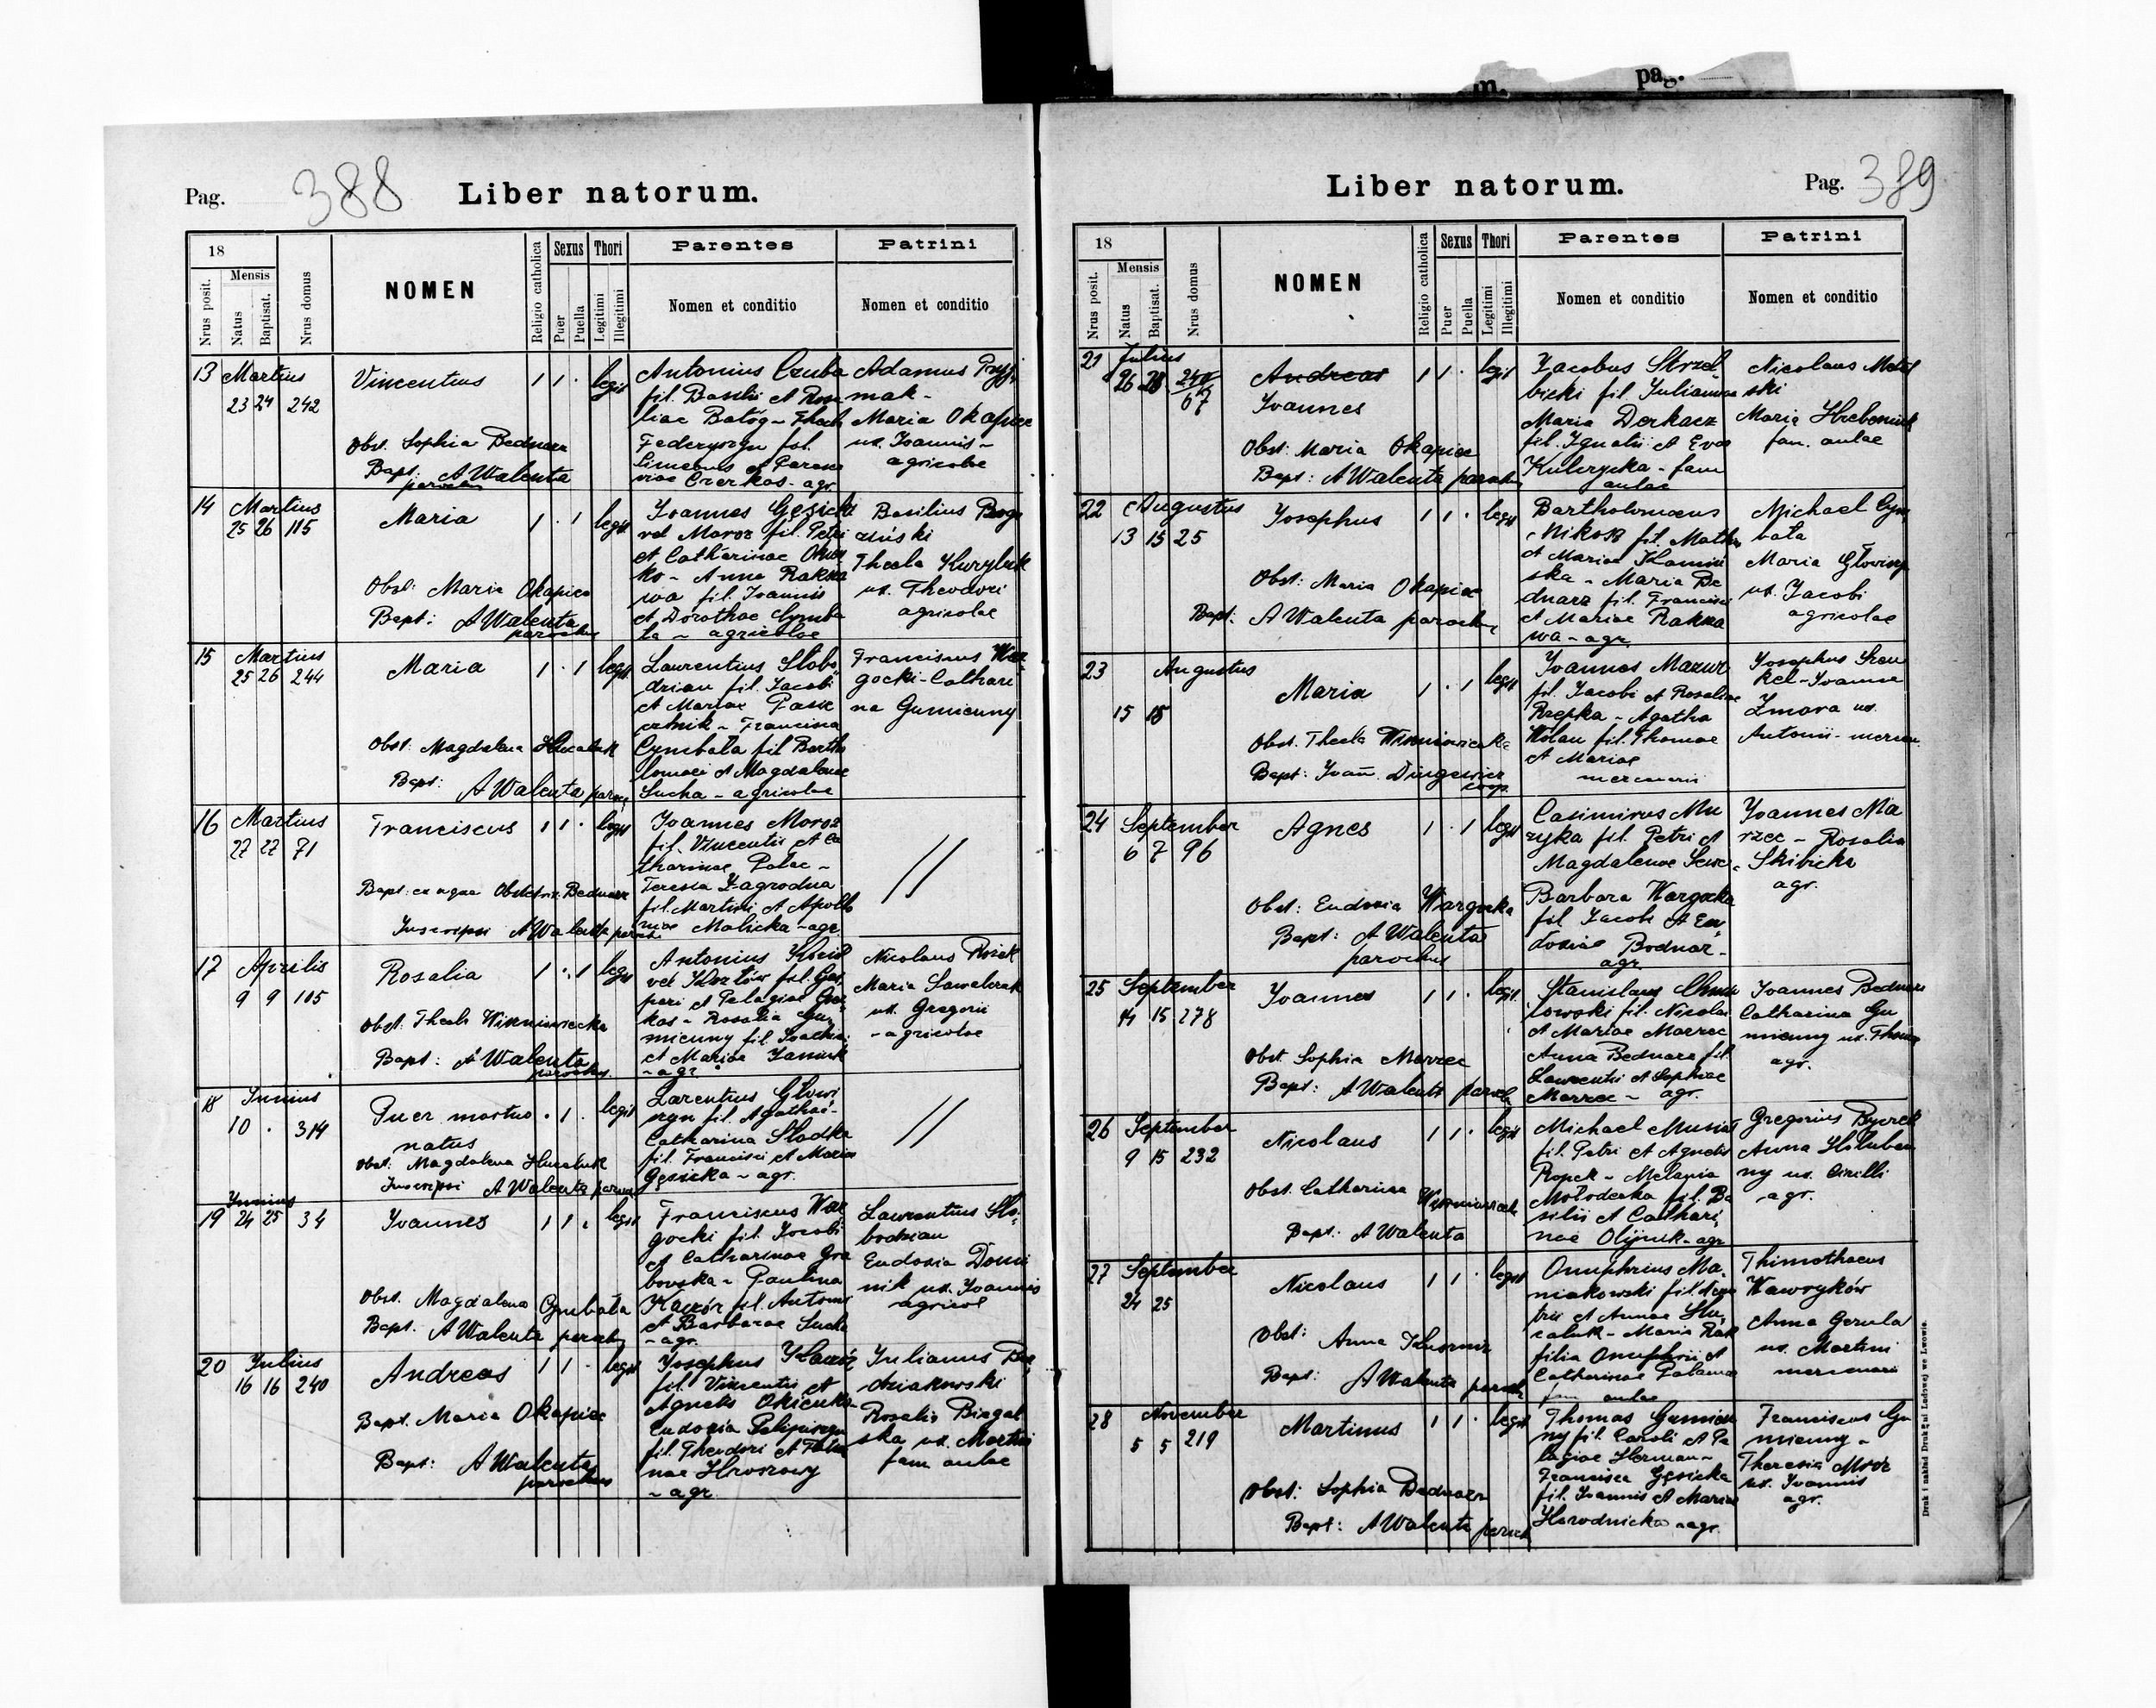 m.
pag.
Pag. 388 Liber natorum.
18
Mensis
Nrus posit.
Natus
Baptisat.
Nrus domus
NOMEN
Religio catholica
Sexus
Puer
Puella
Thori
Legitimi
Illegitimi
Parentes
Nomen et conditio
Patrini
Nomen et conditio
13 Martius
23 24 242
Vincentius
1 1 · legit
Obst. Sophia Bednarz
Bapt: A Walenta
parochus
Antonius Czuba
fil. Basilii et Rosa
liae Batóg - Thecla
fil.
Simeonis et Paras
Czerkas - agr.
Adamus
mak -
Maria Okapiec
ux. Joannis -
agricolae
14 Martius
25 26 115
Maria
1 · 1 legit
Obst: Maria Okapiec
Bapt: A Walenta
parochus
Joannes Gęsicki
vel Moroz fil. Petri
et Catharinae
ko - Anna Rakza
wa fil. Joannis
et Dorothae Cymba
ła - agricolae
Basilius
Thecla Kuryluk
ux. Theodori
agricolae
15 Martius
25 26 244
Maria
1 · 1 legit
Obst. Magdalena Hucaluk
Bapt: A Walenta paroc
Laurentius Słobo
dzian fil. Jacobi
et Mariae
Francisca
Cymbała fil Bartho
lomaei et Magdalenae
Sucha - agricolae
Franciscus War
gocki - Cathari
na Gumienny
16 Martius
27 27 71
Franciscus
1 1 · legit
Bapt: ex aqua Obstetrix Bednarz
Inscripsi A Walenta paroch
Joannes Moroz
fil. Vincentii et Ca
tharinae Palac -
Teresia Zagrodna
fil. Martini et Apollo
niae Malicka - agr.
//
17 Aprilis
9 9 105
Rosalia
1 · 1 legit
Obst. Thecla Wiszniowiecka
Bapt: A Walenta
parochus
Antonius
vel fil. Gas
pari et Pelagiae
kos - Rosalia Gu
mienny fil. Joachimi
et Mariae
- agr.
Nicolaus
Maria
ux. Gregorii
- agricolae
18 Junius
10 · 314
Puer mortuo
natus
· 1 · legit
Obst: Magdalena Hucaluk
Inscripsi A Walenta paroch
Larentius Głowi
fil. Agathae -
Catharina Słodka
fil. Francisci et Mariae
Gęsicka - agr.
//
19 Junius
24 25 34
Joannes
1 1 · legit
Obst. Magdalena Cymbała
Bapt. A Walenta paroch
Franciscus War
gocki fil. Jacobi
et Catharinae Gra
bowska - Paulina
fil. Antonii
et Barbarae Sucha
- agr.
Laurentius Sło
bodzian
Eudoxia Domi
nik ux. Joannis
agricol
20 Julius
16 16 240
Andreas
1 1 · legit
Bapt. Maria Okapiec
Bapt: A Walenta
parochus
Josephus
fil. Vincentii et
Agnetis
Eudoxia
fil. Theodori et
nae
- agr
Julianus
Rosalia
ska ux. Martini
fam aulae
Liber natorum. Pag. 389
18
Mensis
Nrus posit.
Natus
Baptisat.
Nrus domus
NOMEN
Religio catholica
Sexus
Puer
Puella
Thori
Legitimi
Illegitimi
Parentes
Nomen et conditio
Patrini
Nomen et conditio
21 Julius
26 28 240
67
Andreas
Joannes
1 1 · legit
Obst: Maria Okapiec
Bapt: A Walenta paroch
Jacobus Strzel
bicki fil. Julianna
Maria Derkacz
fil. Ignatii et Evae
Kulczycka - fam
aulae
Nicolaus
ski
Maria
fam. aulae
22 Augustus
13 15 25
Josephus
1 1 · legit
Obst: Maria Okapiec
Bapt: A Walenta paroch
Bartholomaeus
fil. Mathei
et Mariae Kamin
ska - Maria Be
dnarz fil. Francisci
et Mariae Rakza
wa - agr.
Michael Cym
bała
Maria
ux. Jacobi
agricolae
23 Augustus
15 15
Maria
1 · 1 legit
Obst. Thecla Wiszniowiecka
Bapt: Joan. Dingiewicz
coop.
Joannes Mazur
fil. Jacobi et Rosaliae
Rzepka - Agatha
Wolan fil. Thomae
et Mariae
mercenarii
Josephus
Joanna
Zmora ux.
Antonii - mercen
24 September
6 7 96
Agnes
1 · 1 legit
Obst: Eudoxia Wargocka
Bapt: A Walenta
parochus
Casimirus Mu
zyka fil. Petri et
Magdalenae
Barbara Wargocka
fil. Jacobi et Eu
doxiae Bodnar -
agr.
Joannes Ma
rzec - Rosalia
Skibicka
agr.
25 September
14 15 278
Joannes
1 1 · legit
Obst. Sophia Marzec
Bapt: A Walenta paroch
Stanislaus
lowski fil. Nicolai
et Mariae Marzec
Anna Bednarz fil.
Laurentii et Sophiae
Marzec - agr.
Joannes Bednarz
Catharina Gu
mienny ux. Thomae
agr.
26 September
9 15 232
Nicolaus
1 1 · legit
Obst. Catharina
Bapt: A Walenta
Michael Musiał
fil. Petri et Agnetis
Ropek - Melania
Mołodecka fil. Ba
silii et Cathari
nae Olijnik - agr
Gregorius
Anna
ny ux. Cirilli
agr.
27 September
24 25
Nicolaus
1 1 · legit
Obst: Anna
Bapt: A Walenta paroch
Onuphrius Ma
niakowski fil.
trii et Annae Hu
caluk - Maria Rak
filia Onuphrii et
Catharinae
fam aulae
Thimotheus
Wawryków
Anna Gerula
ux. Martini
mercenari
28 November
5 5 219
Martinus
1 1 · legit
Obst: Sophia Bednarz
Bapt: A Walenta paroch
Thomas Gumien
ny fil. Caroli et Pe
lagiae Herman -
Francisca Gęsicka
fil. Joannis et Mariae
Horodnicka - agr.
Franciscus Gu
mienny -
Theresia Mroz
ux. Joannis
agr.